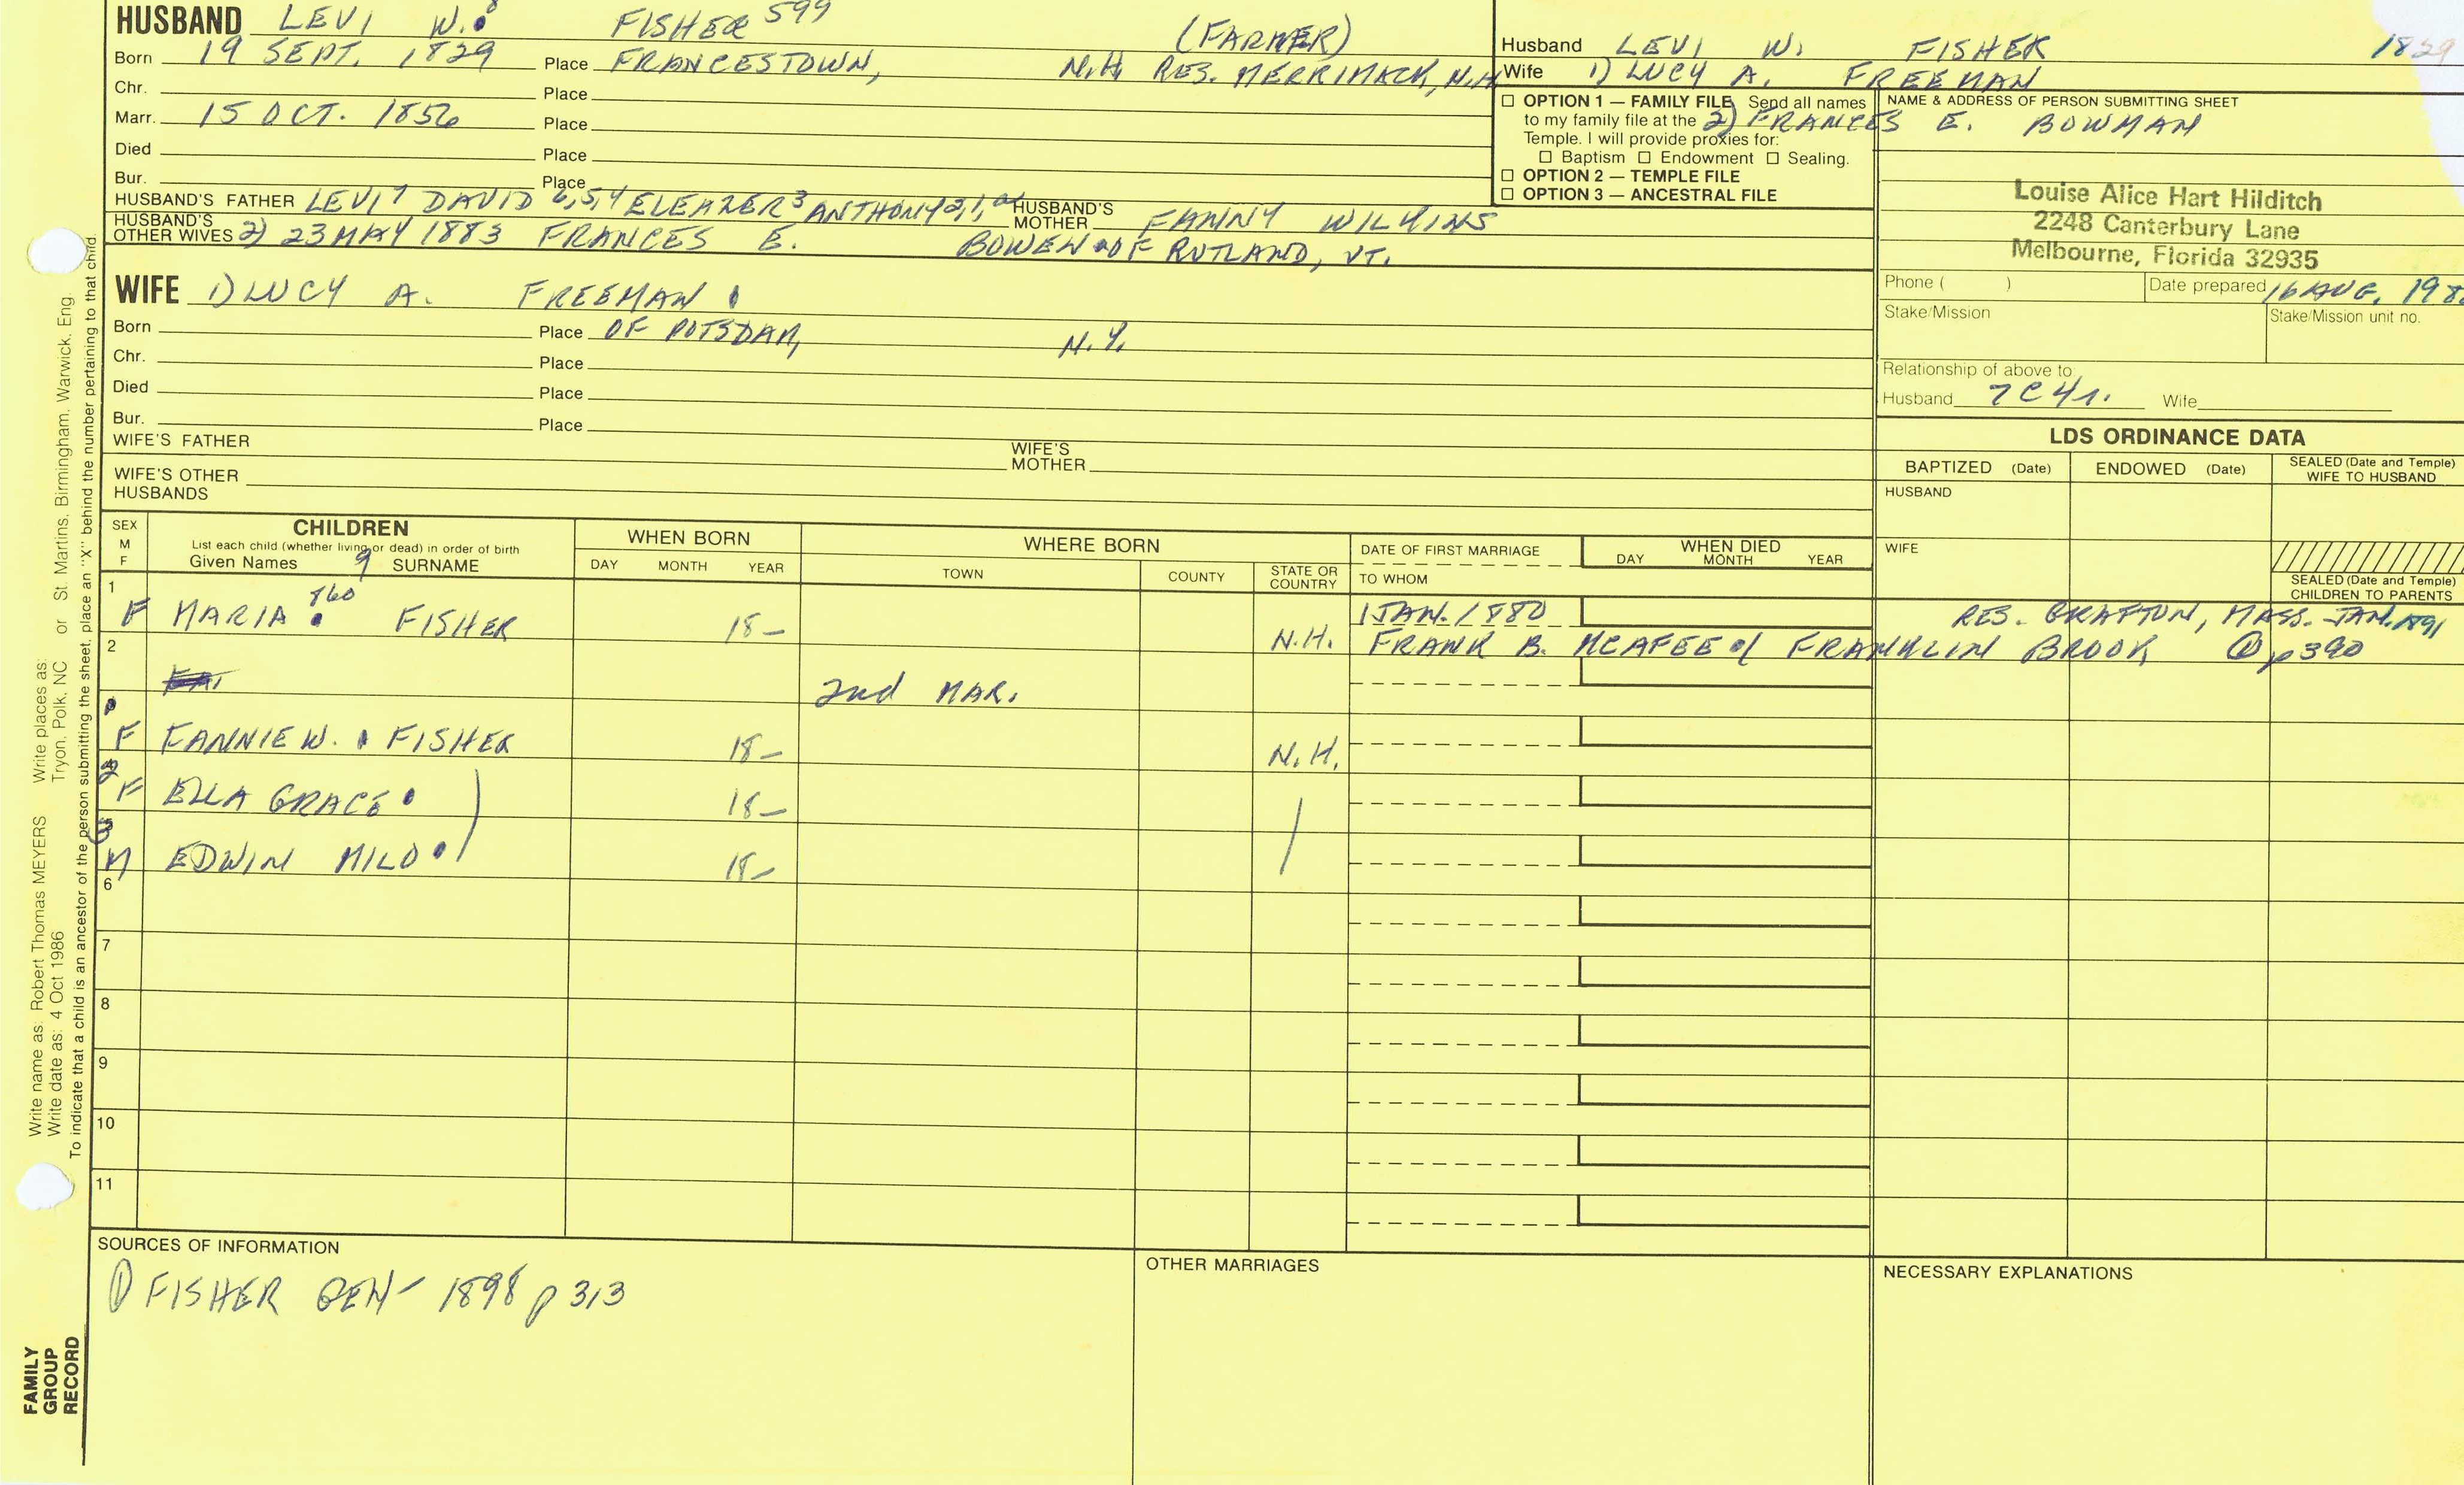 HUSBAND LEVI W.8 FISHER 599 (FARMER)
Born 19 SEPT. 1829 Place FRANCESTOWN, N.H. RES. MERRIMACK, N.H.
Chr. Place
Marr. 15 OCT. 1856 Place
Died Place
Bur. Place
HUSBAND'S FATHER LEVI7 DAVID 6,5,4 ELEAZER3 ANTHONY 2,1, HUSBAND'S MOTHER FANNY WILKINS
HUSBAND'S OTHER WIVES 2) 23 MAY 1883 FRANCES E. BOWEN OF RUTLAND, VT.
WIFE 1) LUCY A. FREEMAN
Born Place OF POTSDAM, N.Y.
Chr. Place
Died Place
Bur. Place
WIFE'S FATHER WIFE'S MOTHER
WIFE'S OTHER HUSBANDS
Husband LEVI W. FISHER 1829
Wife 1) LUCY A. FREEMAN
2) FRANCES E. BOWMAN
☐ OPTION 1 — FAMILY FILE Send all names
to my family file at the
Temple. I will provide proxies for:
☐ Baptism ☐ Endowment ☐ Sealing.
☐ OPTION 2 — TEMPLE FILE
☐ OPTION 3 — ANCESTRAL FILE
NAME & ADDRESS OF PERSON SUBMITTING SHEET
Louise Alice Hart Hilditch
2248 Canterbury Lane
Melbourne, Florida 32935
Phone ( ) Date prepared 16 AUG. 198
Stake/Mission Stake/Mission unit no.
Relationship of above to
Husband 7C4r. Wife
LDS ORDINANCE DATA
BAPTIZED (Date) ENDOWED (Date) SEALED (Date and Temple) WIFE TO HUSBAND
HUSBAND
WIFE
SEALED (Date and Temple) CHILDREN TO PARENTS
SEX M F
CHILDREN
List each child (whether living or dead) in order of birth
Given Names 9 SURNAME
WHEN BORN
DAY MONTH YEAR
WHERE BORN
TOWN COUNTY STATE OR COUNTRY
DATE OF FIRST MARRIAGE
TO WHOM
WHEN DIED
DAY MONTH YEAR
1 F MARIA 860 FISHER 18- N.H. 1 JAN. 1880 RES. GRAFTON, MASS. JAN. 1891
FRANK B. MCAFEE of FRANKLIN BROOK ① p 390
2 2nd MAR.
F FANNIE W. FISHER 18- N.H.
2 F ELLA GRACE 18-
3 M EDWIN MILO 18-
6
7
8
9
10
11
SOURCES OF INFORMATION
① FISHER GEN- 1898 p 313
OTHER MARRIAGES
NECESSARY EXPLANATIONS
Write name as: Robert Thomas MEYERS Write places as:
Write date as: 4 Oct 1986 Tryon, Polk, NC or St. Martins, Birmingham, Warwick, Eng.
To indicate that a child is an ancestor of the person submitting the sheet, place an "X" behind the number pertaining to that child.
FAMILY
GROUP
RECORD